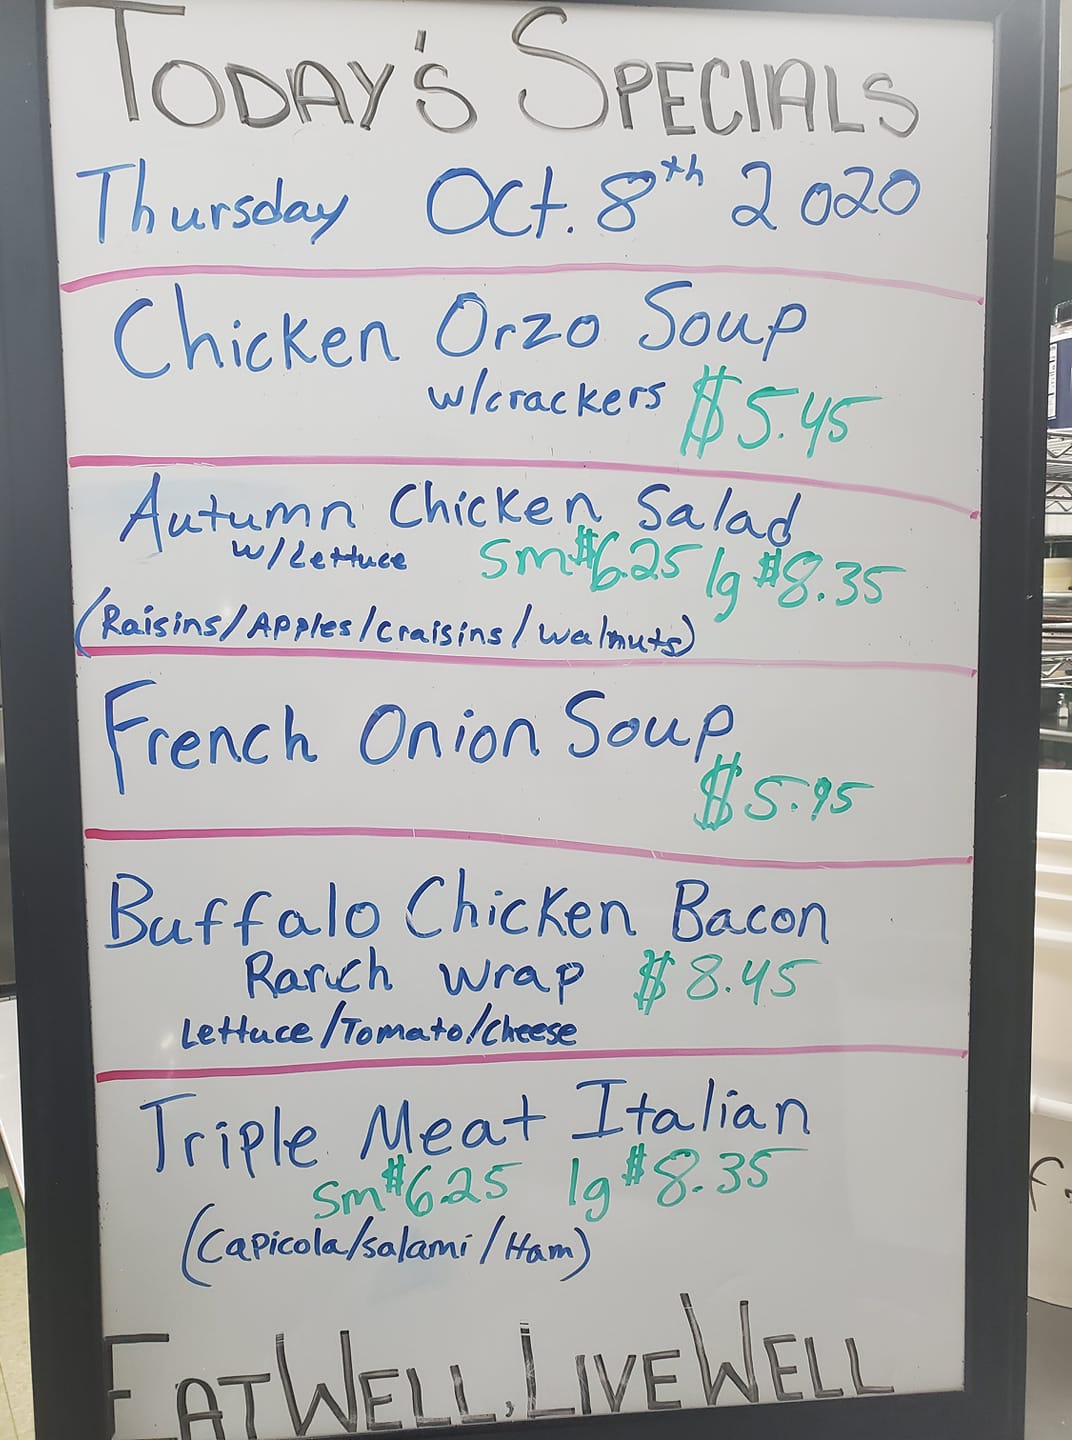 TODAY'S SPECIALS
Thursday Oct. 8th 2020
Chicken Orzo Soup
w/crackers $5.45
Autumn Chicken Salad
w/Lettuce sm $6.25 lg $8.35
(Raisins/Apples/craisins/walnuts)
French Onion Soup
$5.95
Buffalo Chicken Bacon
Ranch wrap $8.45
Lettuce/Tomato/Cheese
Triple Meat Italian
sm $6.25 lg $8.35
(Capicola/salami/Ham)
EAT WELL, LIVE WELL